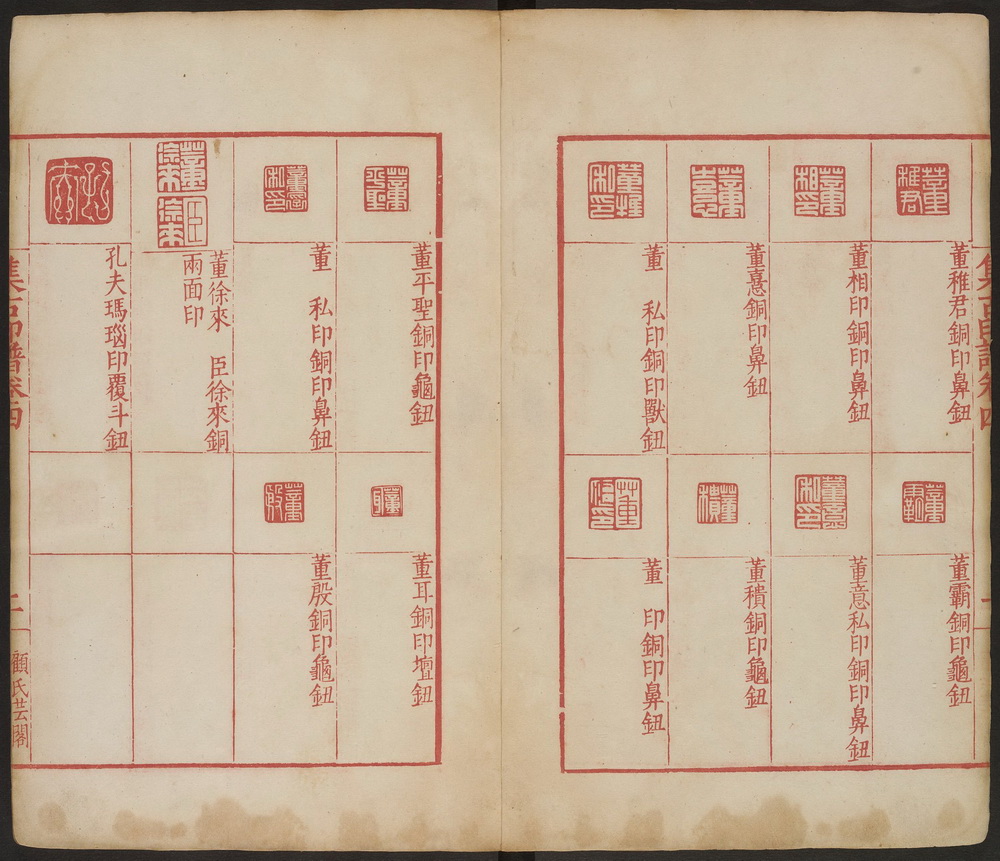 董稚君銅印鼻鈕
董霸銅印龜鈕
董相印銅印鼻鈕
董意私印銅印鼻鈕
董憙銅印鼻鈕
董䅽銅印龜鈕
董　私印銅印獸鈕
董　印銅印鼻鈕
董平聖銅印龜鈕
董耳銅印壇鈕
董　私印銅印鼻鈕
董殷銅印龜鈕
董徐來　臣徐來銅
兩面印
孔夫瑪瑙印覆斗鈕
集古印譜卷四
二
顧氏芸閣